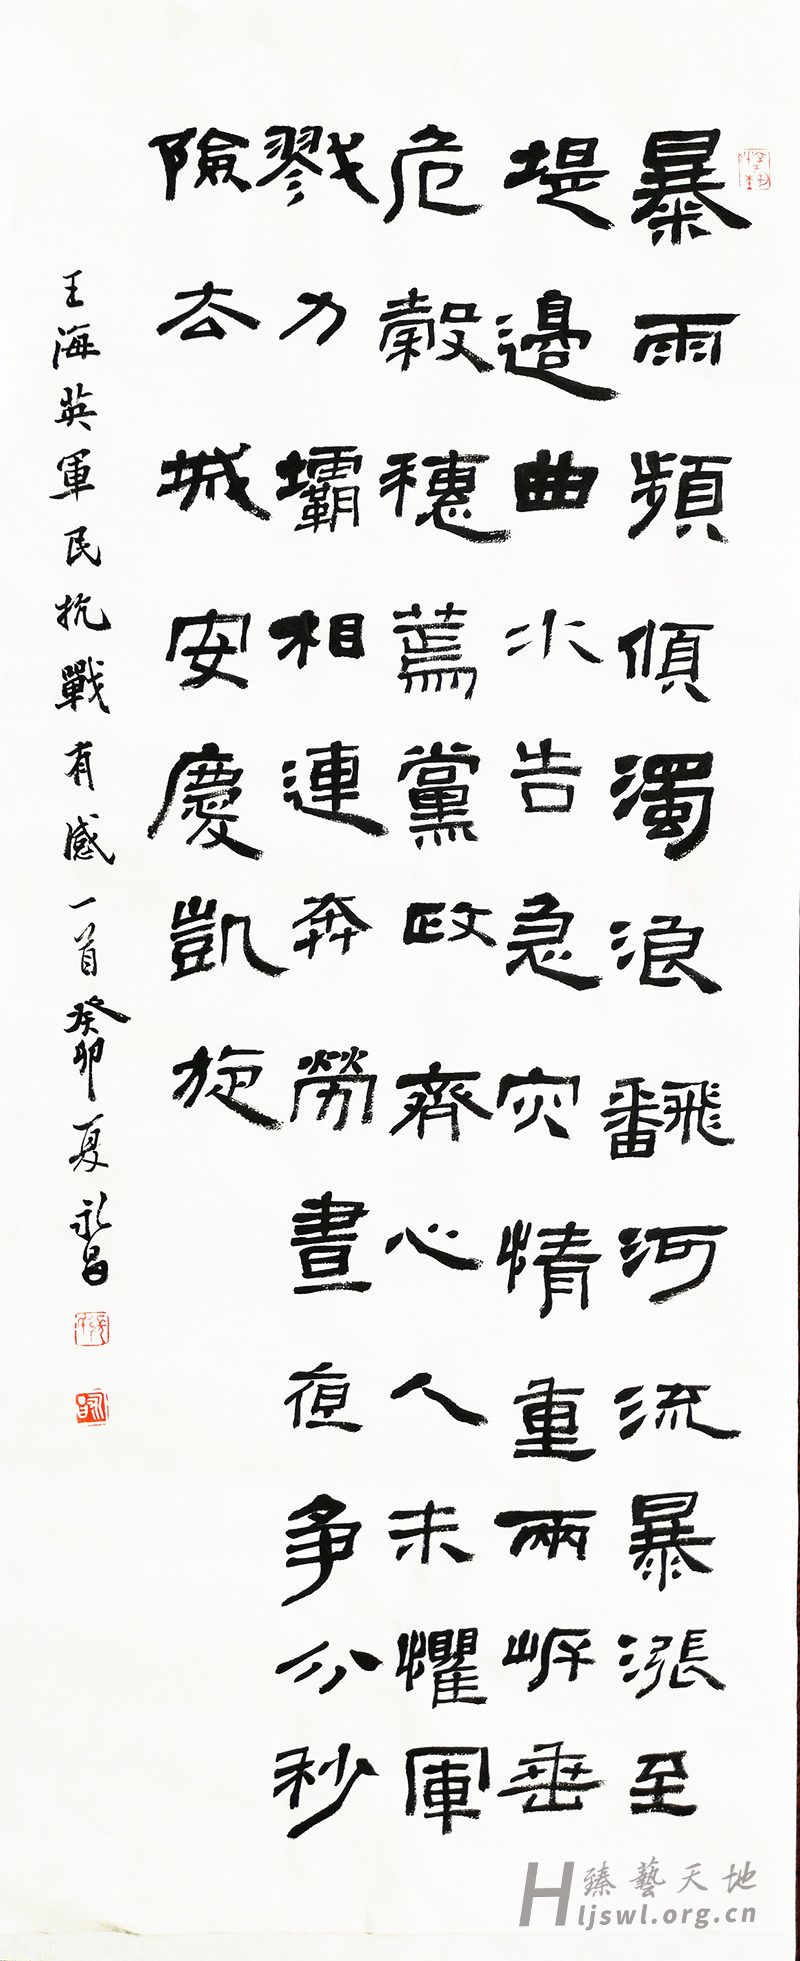 暴雨頻傾濁浪飜河流暴漲至
堤邊曲水告急災情重兩岸垂
危穀穗蔫黨政齊心人未懼軍
戮力壩相連奔勞晝夜争分秒
險去城安慶凱旋
王海英軍民抗戰有感一首癸卯夏永昌
臻藝天地
Hljswl.org.cn